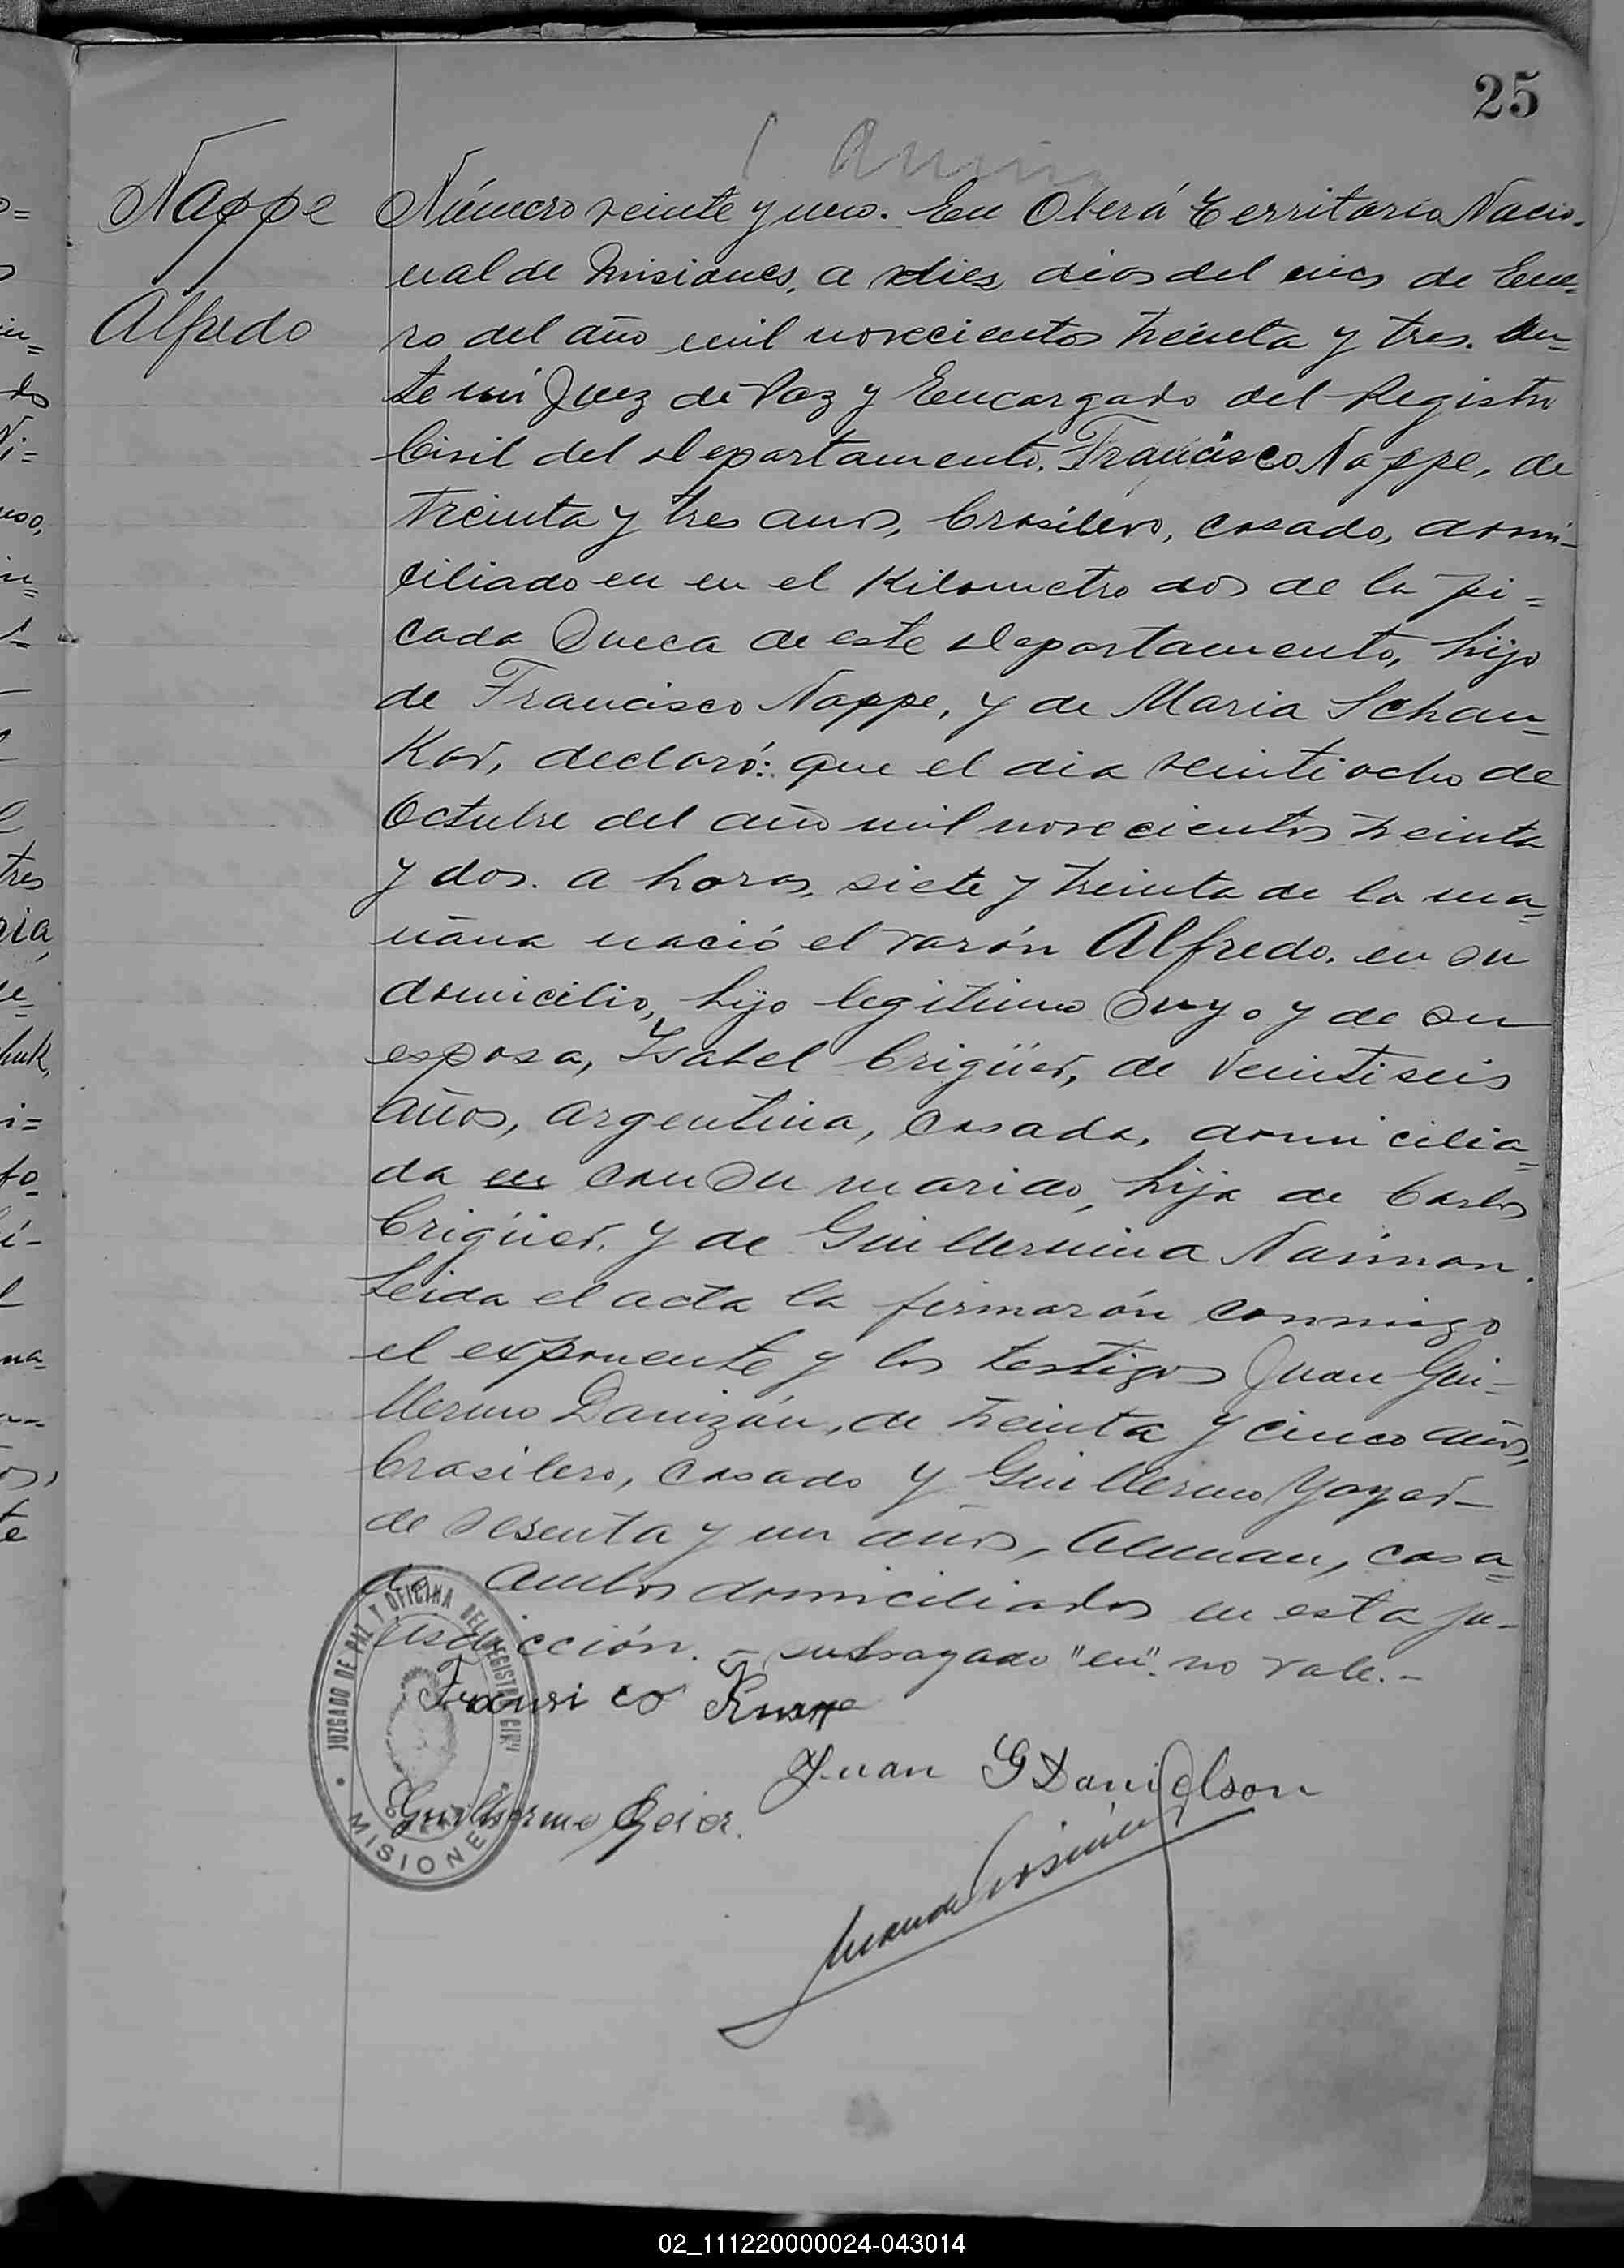 25
Nappe
Alfredo
Número veinte y uno. En Oberá Territorio Nacio-
nal de Misiones, a diez dias del mes de Ene-
ro del año mil novecientos treinta y tres. An-
te mi Juez de Paz y Encargado del Registro
Civil del departamento. Francisco Nappe, de
treinta y tres años, brasilero, casado, domi-
ciliado en en el Kilometro dos de la pi=
cada Sueca de este departamento, hijo
de Francisco Nappe, y de Maria Schan-
Kor, declaró: que el dia veintiocho de
Octubre del año mil novecientos treinta
y dos. a horas, siete y treinta de la ma=
ñana nació el varón Alfredo. en su
domicilio, hijo legitimo suyo y de su
esposa, Ysabel Crigüer, de veintiseis
años, argentina, casada, domicilia=
da en con su marido, hija de Carlos
Crigüer. y de Guillermina Naiman.
Leida el acta la firmarón conmigo
el exponente y los testigos Juan Gui-
llermo Danizón, de treinta y cinco años,
brasilero, casado y Guillermo Yayer-
de sesenta y un años, Aleman, casa=
do ambos domiciliados en esta ju-
risdicción. - subrayado "en". no vale.-
Juan G Danielson
Guilhermo Geier.
JUZGADO DE PAZ Y OFICINA DEL REGISTRO CIVIL
MISIONES
02_111220000024-043014